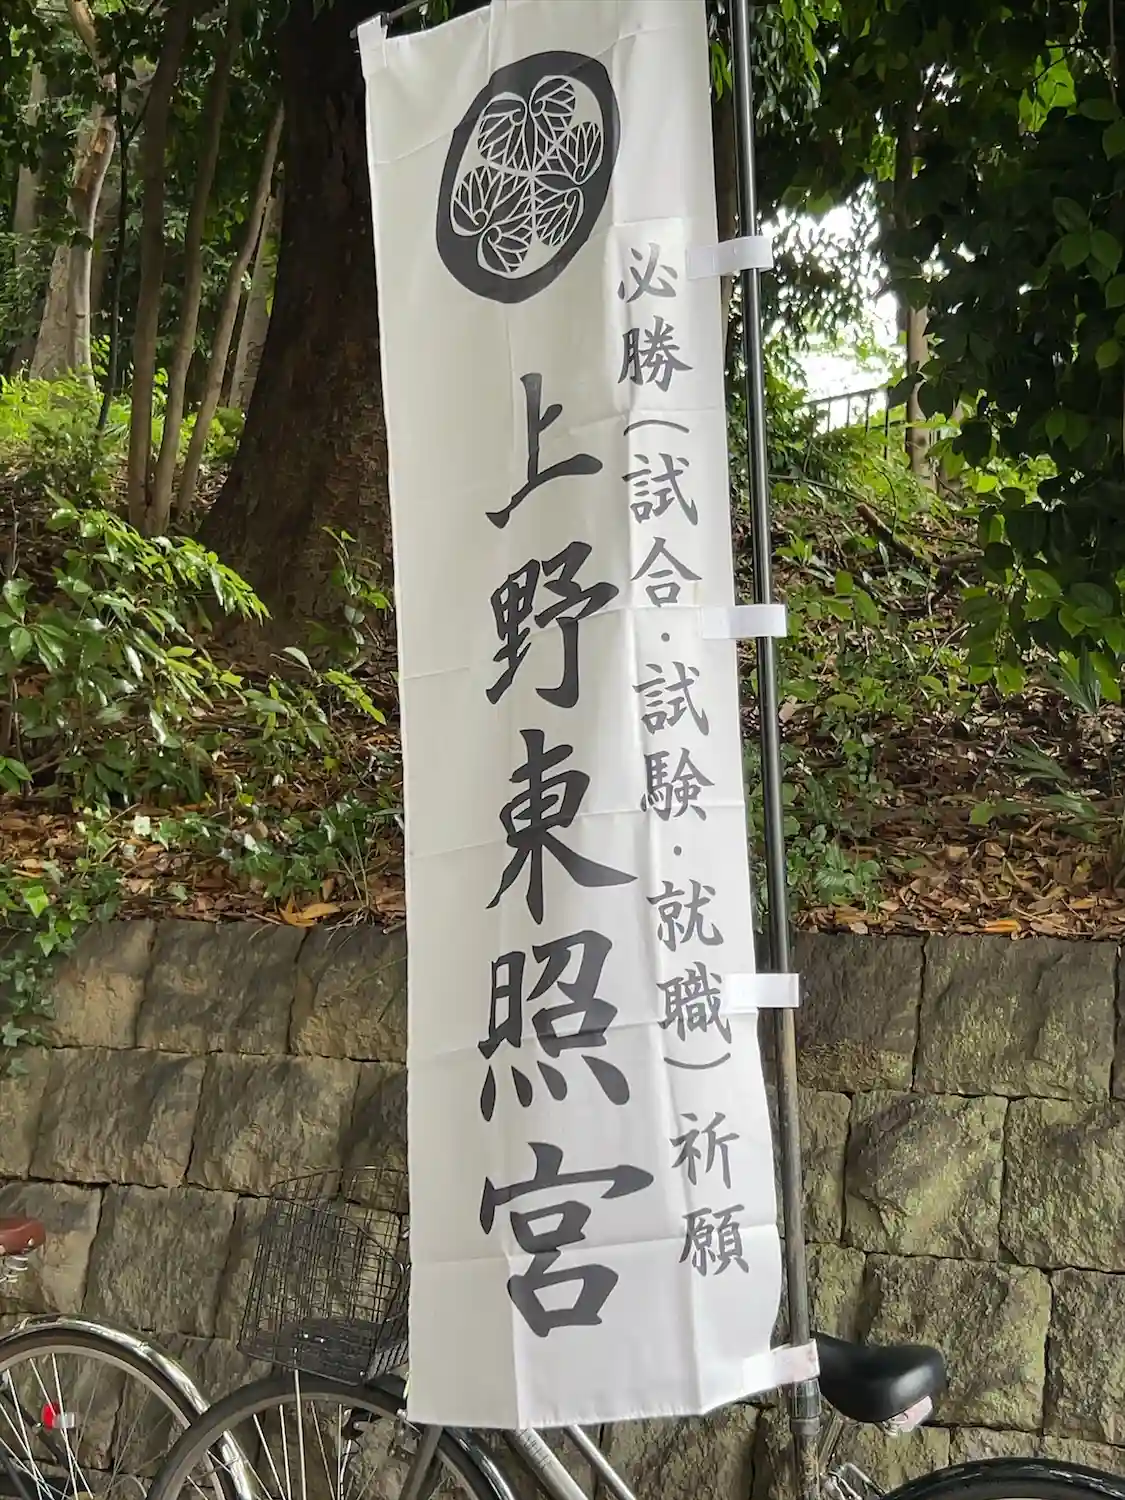 必勝(試合・試験・就職)祈願
上野東照宮